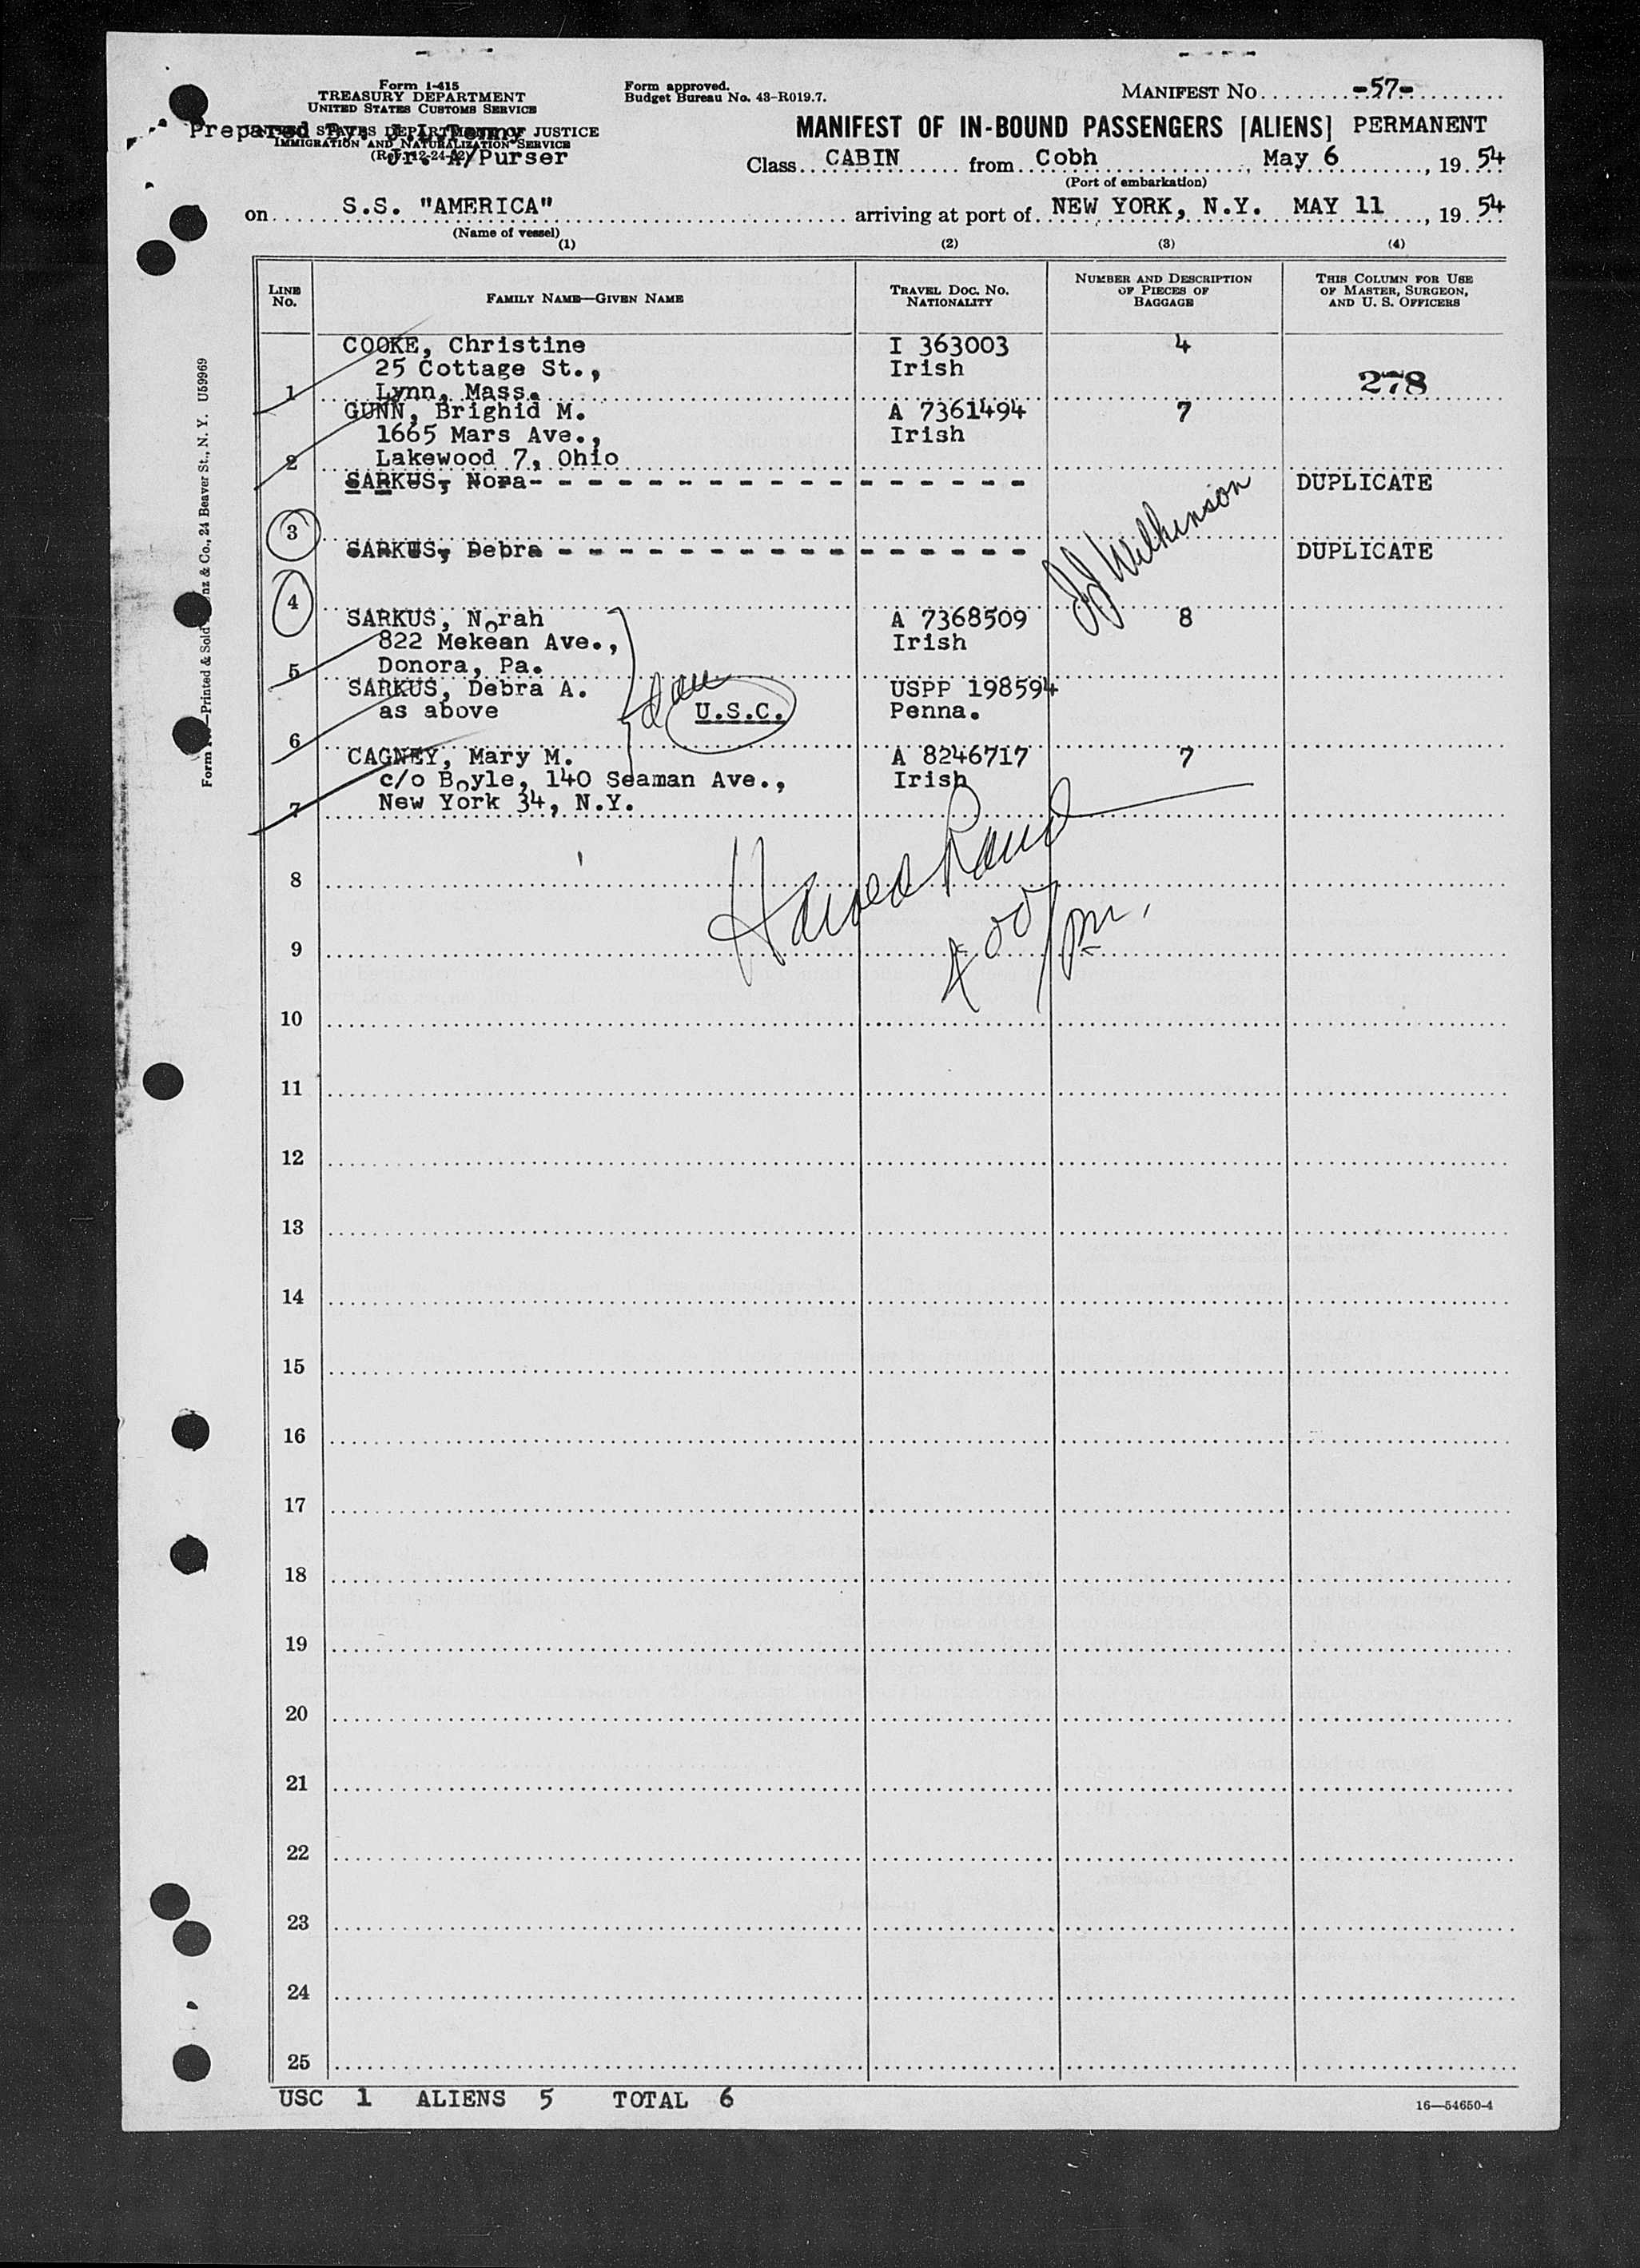 Form I-415
TREASURY DEPARTMENT
UNITED STATES CUSTOMS SERVICE
Form approved.
Budget Bureau No. 43-R019.7.
MANIFEST NO. -57-
Prepared By: J.L.
STATES DEPARTMENT OF JUSTICE
IMMIGRATION AND NATURALIZATION SERVICE
Jr. A/Purser
MANIFEST OF IN-BOUND PASSENGERS [ALIENS] PERMANENT
Class CABIN from Cobh, May 6, 19 54
(Port of embarkation)
on S.S. "AMERICA" arriving at port of NEW YORK, N.Y. MAY 11, 19 54
(Name of vessel)
(1) (2) (3) (4)
LINE NO. FAMILY NAME—GIVEN NAME TRAVEL DOC. NO. NATIONALITY NUMBER AND DESCRIPTION OF PIECES OF BAGGAGE THIS COLUMN FOR USE OF MASTER, SURGEON, AND U. S. OFFICERS
COOKE, Christine I 363003 4
25 Cottage St., Irish
1 Lynn, Mass. 278
GUNN, Brighid M. A 7361494 7
1665 Mars Ave., Irish
2 Lakewood 7, Ohio
SARKUS, Nora - - - - - - - - - - - - - - - - - DUPLICATE
3
SARKUS, Debra - - - - - - - - - - - - - - - - DUPLICATE
JJ Wilkinson
4
SARKUS, Norah A 7368509 8
822 Mekean Ave., Irish
5 Donora, Pa.
SARKUS, Debra A. USPP 198594
as above U.S.C. Penna.
6
CAGNEY, Mary M. A 8246717 7
c/o Boyle, 140 Seaman Ave., Irish
7 New York 34, N.Y.
Harold Rand
8
400/pm.
9
10
11
12
13
14
15
16
17
18
19
20
21
22
23
24
25
USC 1 ALIENS 5 TOTAL 6
16—54650-4
Printed & Sold
nz & Co., 24 Beaver St., N. Y. U59969